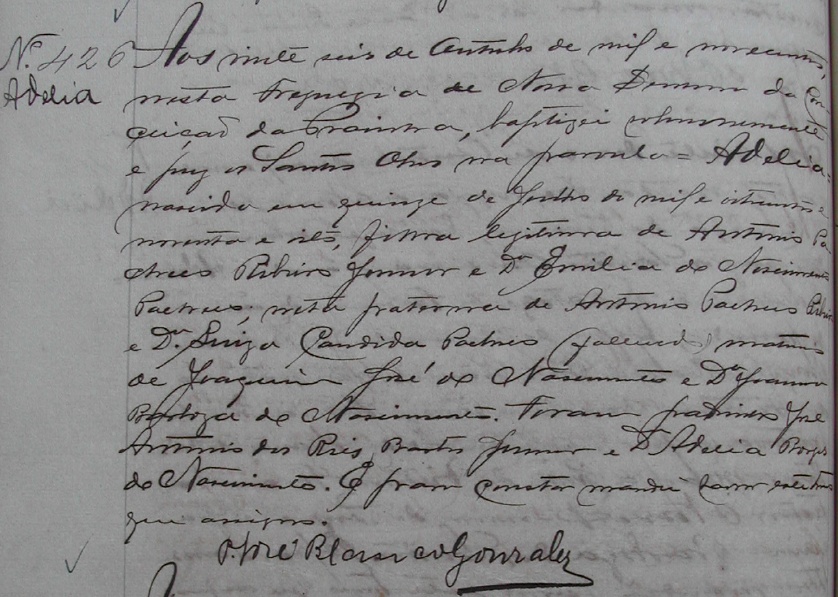 Nº 426 Aos vinte seis de Outubro de mil e novecentos,
Adelia
nesta Freguezia de Nossa Senhora da Con-
ceição da Prainha, baptizei solemnemente
e puz os Santos Oleos na parvula = Adelia =
nascida em quinze de Julho de mil e oitocentos e
noventa e oito, filha legitima de Antonio Pa-
checo Ribeiro Junior e Dª Emilia do Nascimento
Pacheco; neta paterna de Antonio Pacheco Ribeiro
e Dª Luiza Candida Pacheco (fallecida) materna
de Joaquim José do Nascimento e Dª Joanna
Barboza do Nascimento. Foram padrinhos José
Antonio dos Reis Bastos Junior e Dª Adelia Borges
do Nascimento. E para constar mandei lavrar este termo
que assigno.
P. José Blanco Gonzalez